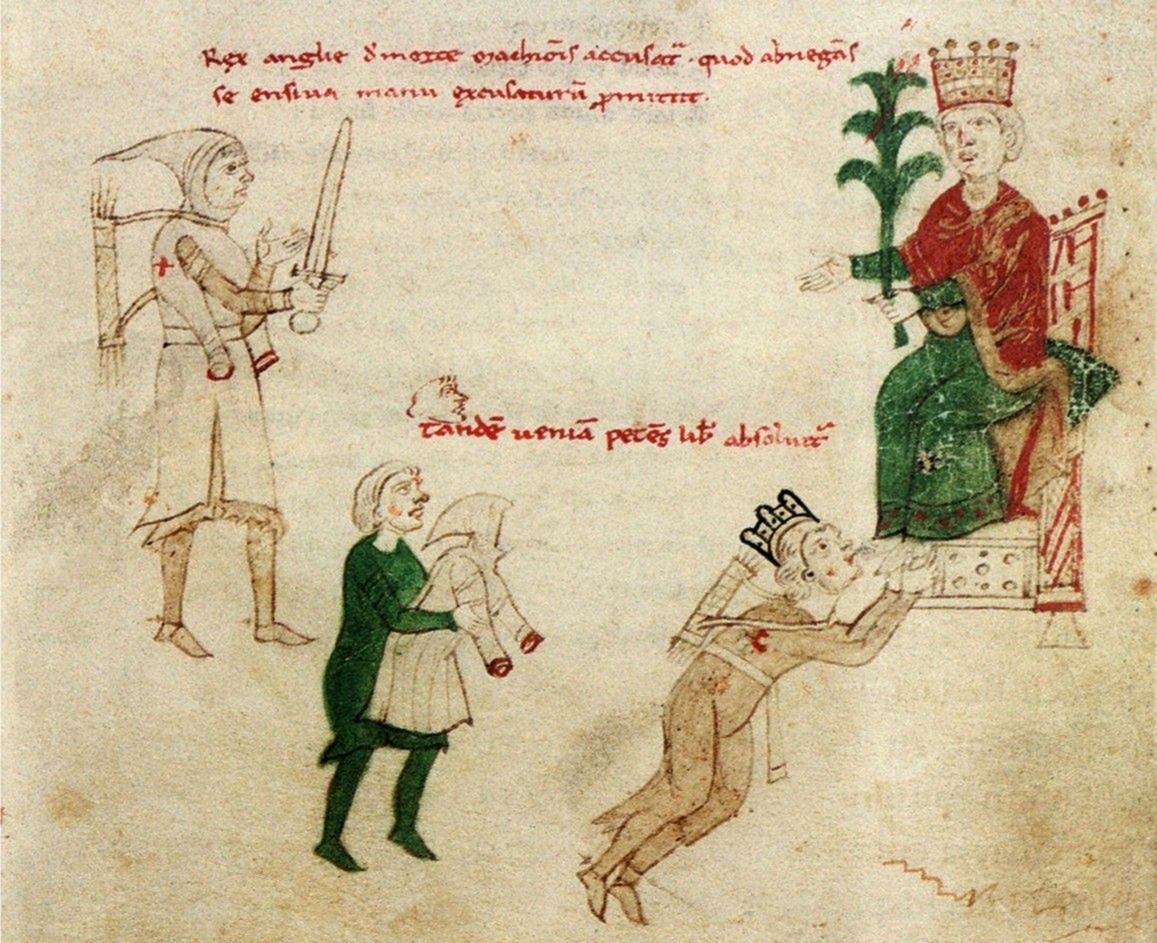 Rex anglie d̄ morte marchiōis accusat᷑ · quod abnegās
se ensiua manu excusaturū ꝓmittit.
tandē ueniā petēs lib̄ absoluit᷑